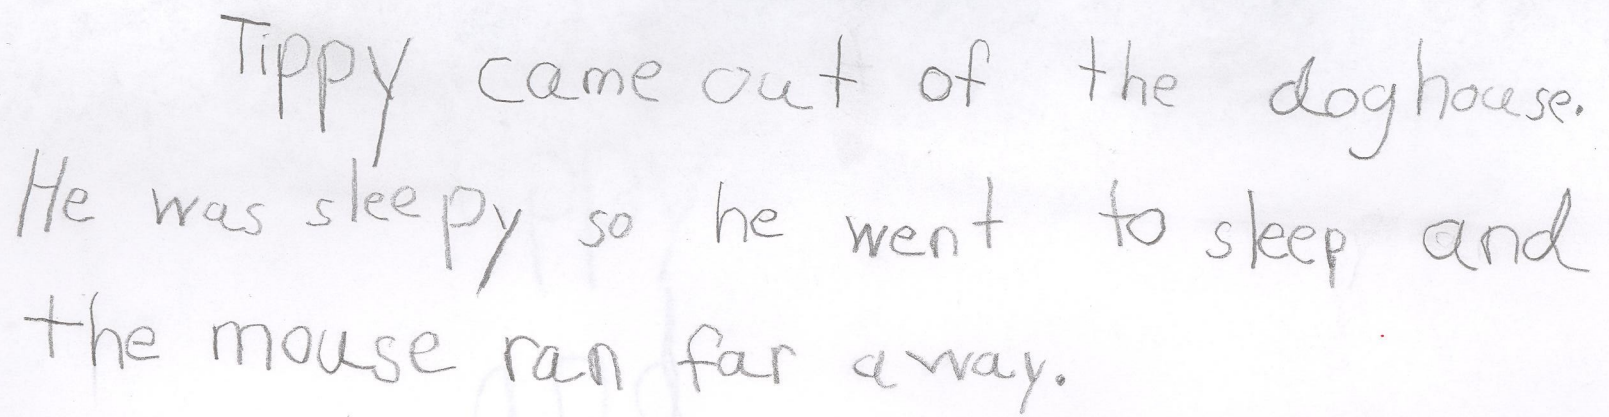 Tippy came out of the doghouse.
He was sleepy so he went to sleep and
the mouse ran far away.